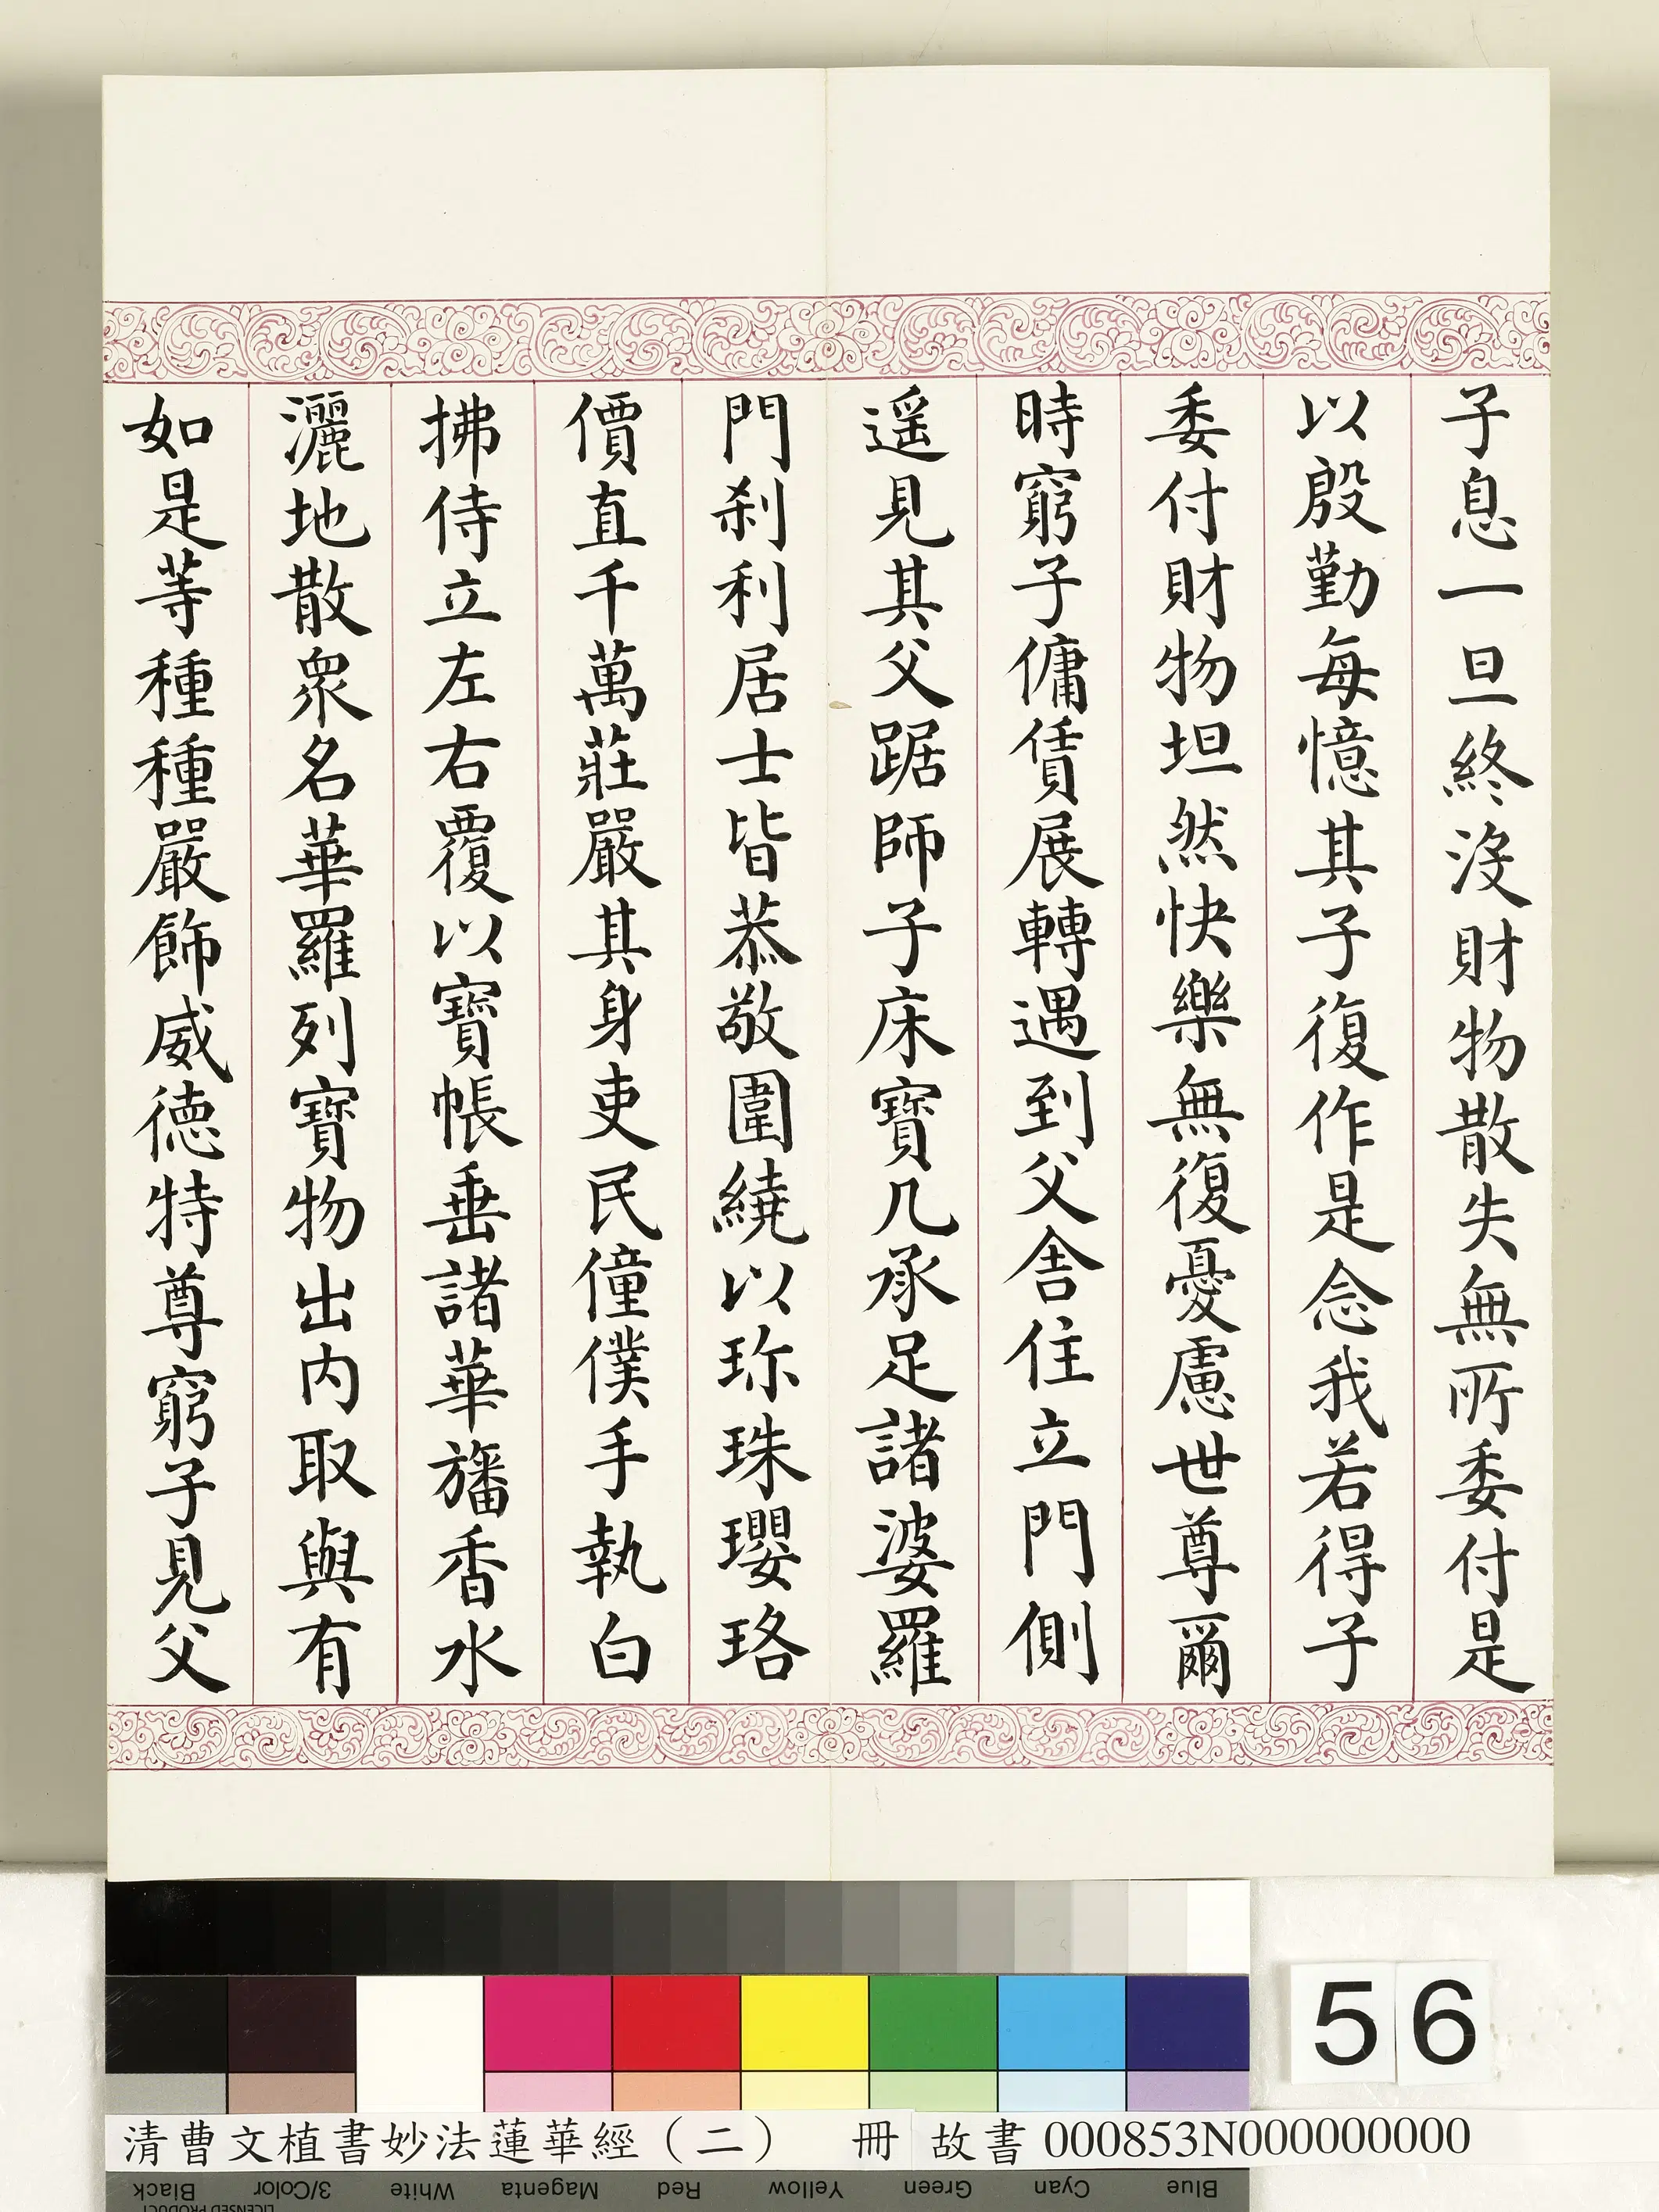 子息一旦終沒財物散失無所委付是
以殷勤每憶其子復作是念我若得子
委付財物坦然快樂無復憂慮世尊爾
時窮子傭賃展轉遇到父舍住立門側
遥見其父踞師子床寶几承足諸婆羅
門刹利居士皆恭敬圍繞以珎珠瓔珞
價直千萬莊嚴其身吏民僮僕手執白
拂侍立左右覆以寶帳垂諸華旛香水
灑地散衆名華羅列寶物出内取與有
如是等種種嚴飾威德特尊窮子見父
56
清曹文植書妙法蓮華經（二） 冊 故書 000853N000000000
Black 3/Color White Magenta Red Yellow Green Cyan Blue
LICENSED PRODUCT